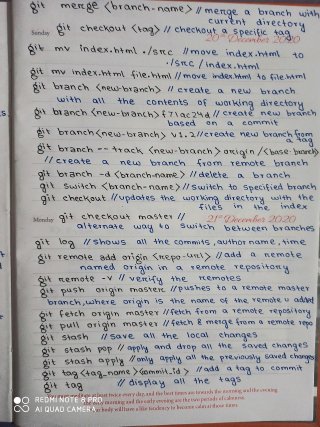 git merge <branch-name> // merge a branch with
current directory
Sunday git checkout <tag> // checkout a specific tag
20th December 2020
git mv index.html ./src //move index.html to
./src/index.html
git mv index.html file.html // move index.html to file.html
git branch <new-branch> // create a new branch
with all the contents of working directory
git branch <new-branch> f71ac24d // create new branch
based on a commit
git branch <new-branch> v1.2 //create new branch from
a tag
git branch --track <new-branch> origin/<base-branch>
// create a new branch from remote branch
git branch -d <branch-name> //delete a branch
git switch <branch-name> //switch to specified branch
git checkout //updates the working directory with the
files in the index
Monday git checkout master // 21st December 2020
alternate way to switch between branches
git log //shows all the commits, author name, time
git remote add origin <repo-url> //add a remote
named origin in a remote repository
git remote -v // verify the remotes
git push origin master //pushes to a remote master
branch, where origin is the name of the remote u added
git fetch origin master //fetch from a remote repository
git pull origin master //fetch & merge from a remote repo
git stash //save all the local changes
git stash pop // apply and drop all the saved changes
git stash apply //only apply all the previously saved changes
git tag <tag_name> <commit_id> // add a tag to commit
git tag // display all the tags
twice every day, and the best times are towards the morning and the evening
morning and the early evening are the two periods of calmness
body will have a like tendency to become calm at those times
REDMI NOTE 8 PRO
AI QUAD CAMERA